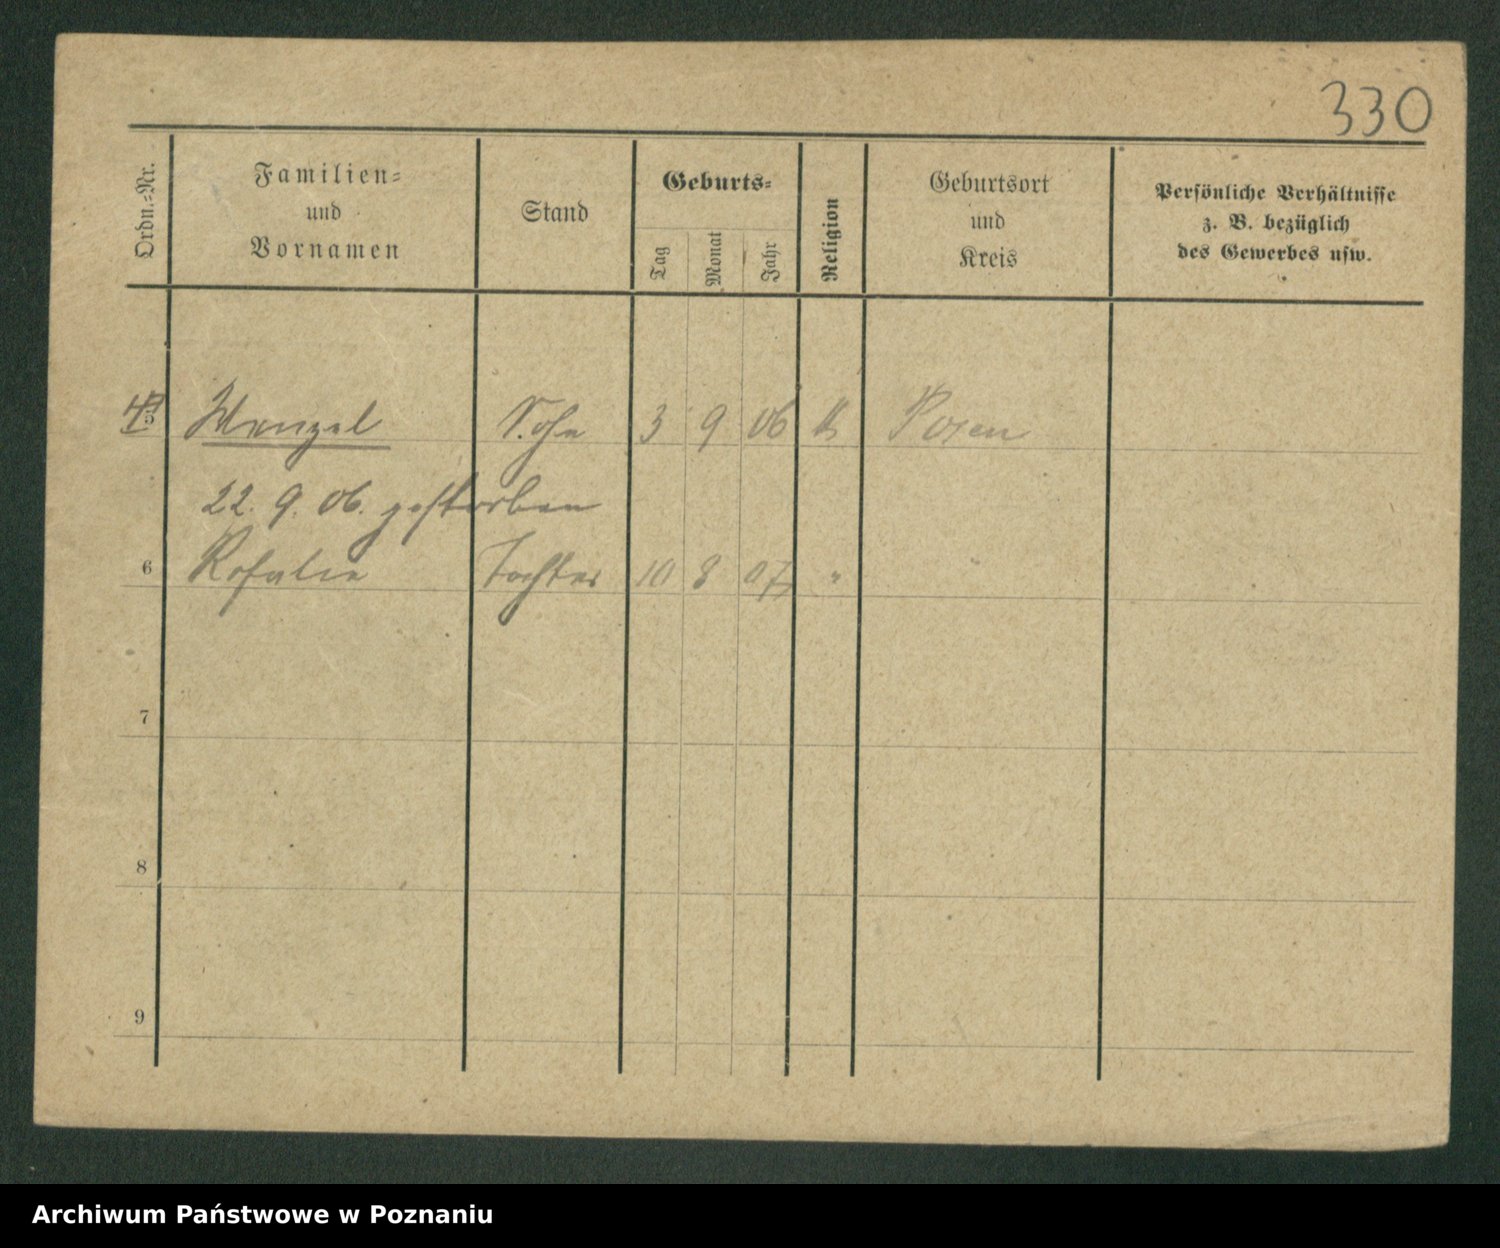 330
Ordn.-Nr.
Familien-
und
Vornamen
Stand
Geburts-
Tag
Monat
Jahr
Religion
Geburtsort
und
Kreis
Persönliche Verhältnisse
z. B. bezüglich
des Gewerbes usw.
5 Wenzel Sohn 3 9 06 k Posen
22. 9. 06. gestorben
6 Rosalie Tochter 10 8 07 "
7
8
9
Archiwum Państwowe w Poznaniu